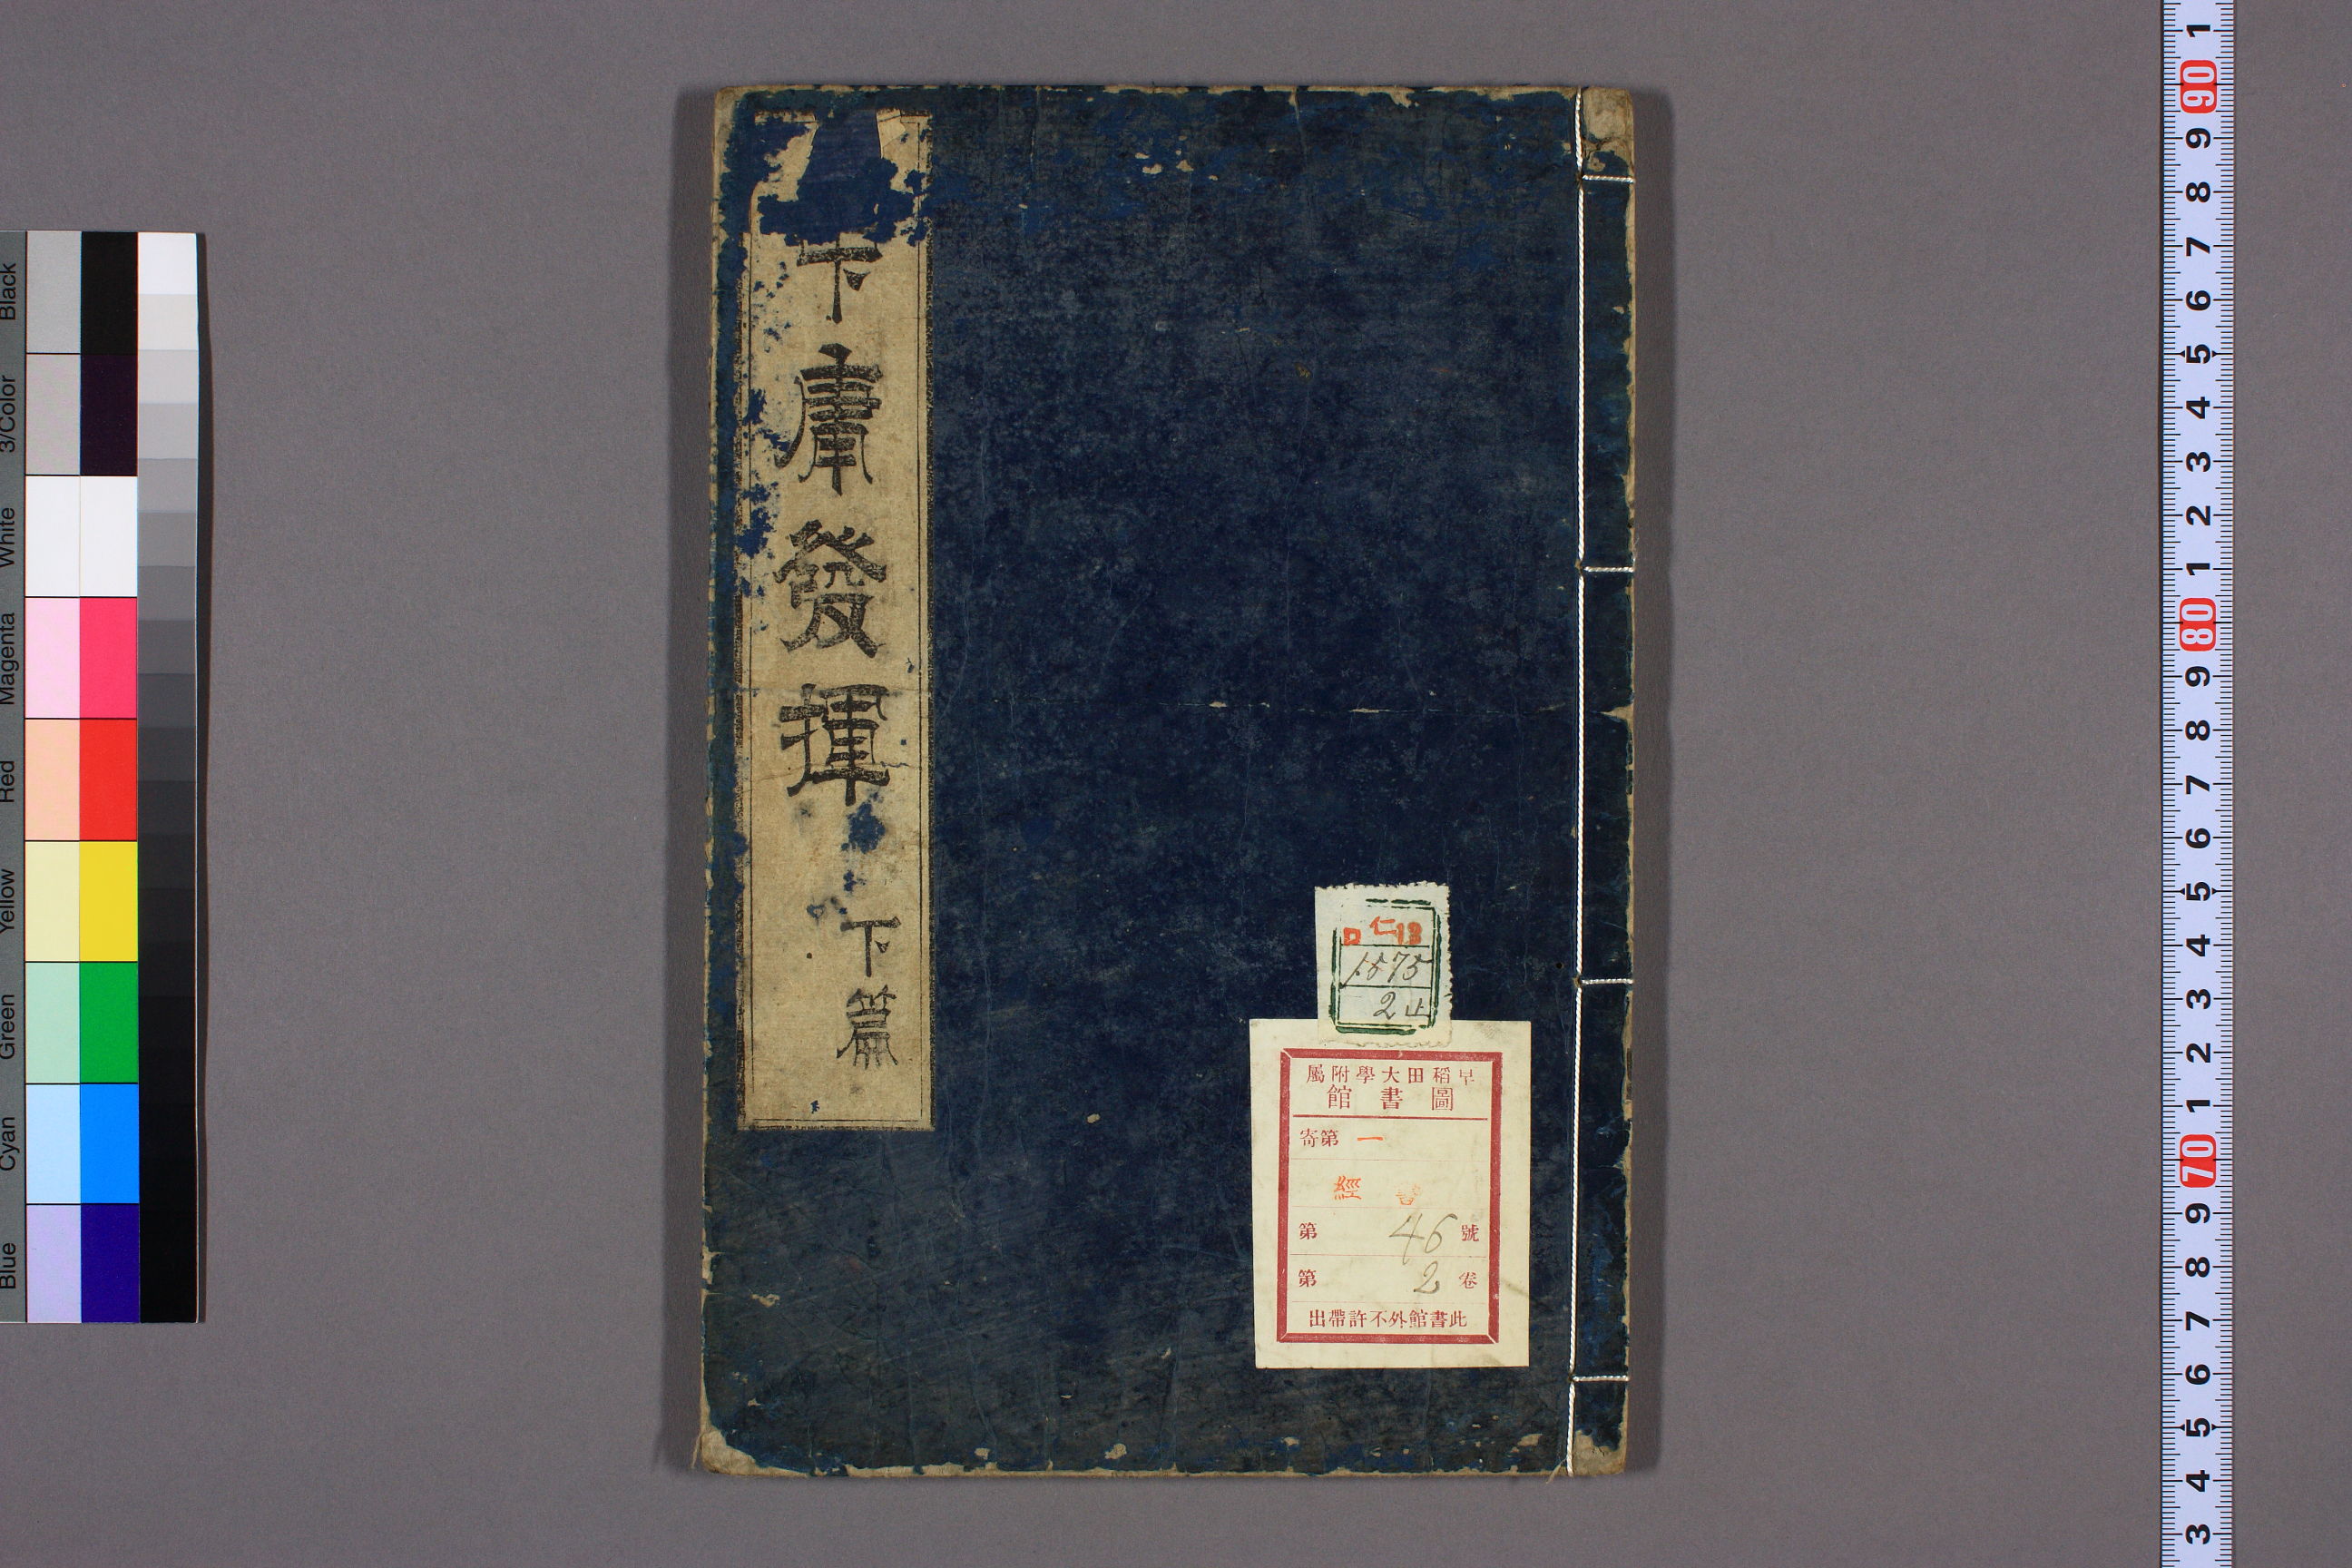 下庸發揮
下篇
ロ 仁13
1575
2止
早稻田大學附屬
圖書館
寄第 一
經
第 46 號
第 2 卷
此書館外不許帶出
Black
3/Color
White
Magenta
Red
Yellow
Green
Cyan
Blue
1
90
9
8
7
6
5
4
3
2
1
80
9
8
7
6
5
4
3
2
1
70
9
8
7
6
5
4
3